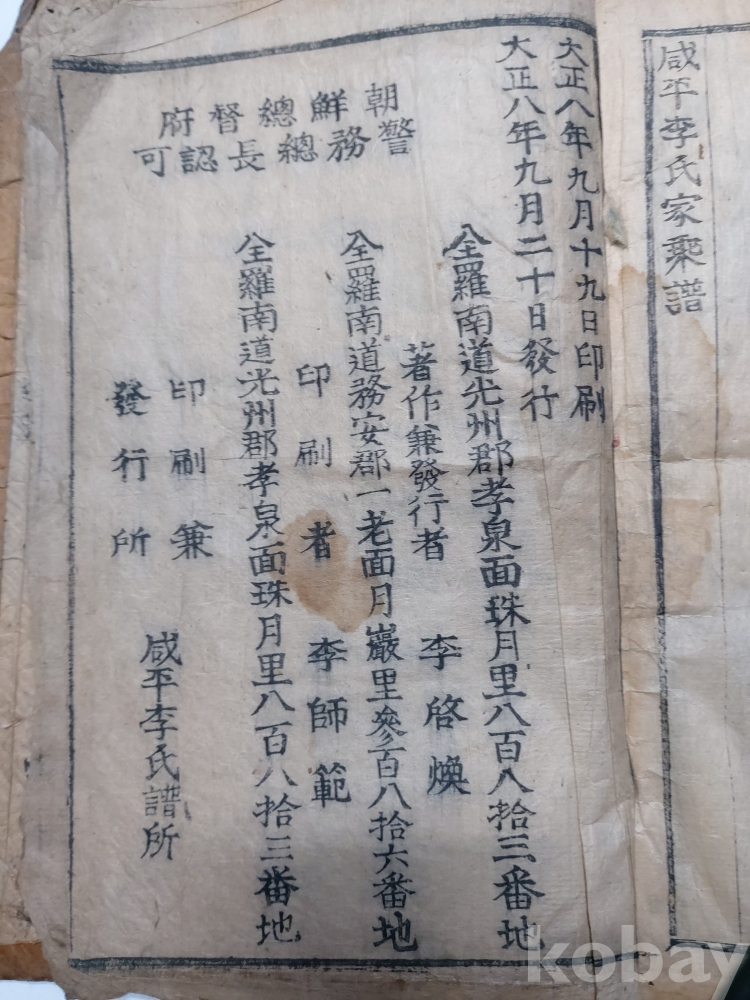 咸平李氏家乘譜
大正八年九月十九日印刷
大正八年九月二十日發行
全羅南道光州郡孝泉面珠月里八百八拾三番地
著作兼發行者 李啓煥
全羅南道務安郡一老面月巖里參百八拾六番地
印刷者 李師範
全羅南道光州郡孝泉面珠月里八百八拾三番地
印刷兼
發行所
咸平李氏譜所
朝鮮總督府
警務總長認可
kobay